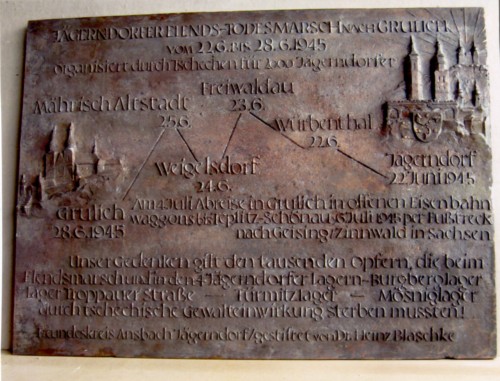 JÄGERNDORFER ELENDS-TODESMARSCH NACH GRULICH
VOM 22.6. BIS 28.6.1945
organisiert durch Tschechen für 2000 Jägerndorfer
Freiwaldau
23.6.
Mährisch Altstadt
25.6.
Würbenthal
22.6.
Weigelsdorf
24.6.
Jägerndorf
22. Juni 1945
Grulich
28.6.1945
Am 4. Juli Abreise in Grulich in offenen Eisenbahn
waggons bis Teplitz-Schönau 6. Juli 1945 per Fußtreck
nach Geising/Zinnwald in Sachsen
Unser Gedenken gilt den tausenden Opfern, die beim
Elendsmarsch und in den 4 Jägerndorfer Lagern - Burgberglager
Lager Troppauer Straße — Türmitzlager — Mösniglager
durch tschechische Gewalteinwirkung sterben mussten!
Freundeskreis Ansbach Jägerndorf/gestiftet von Dr. Heinz Blaschke